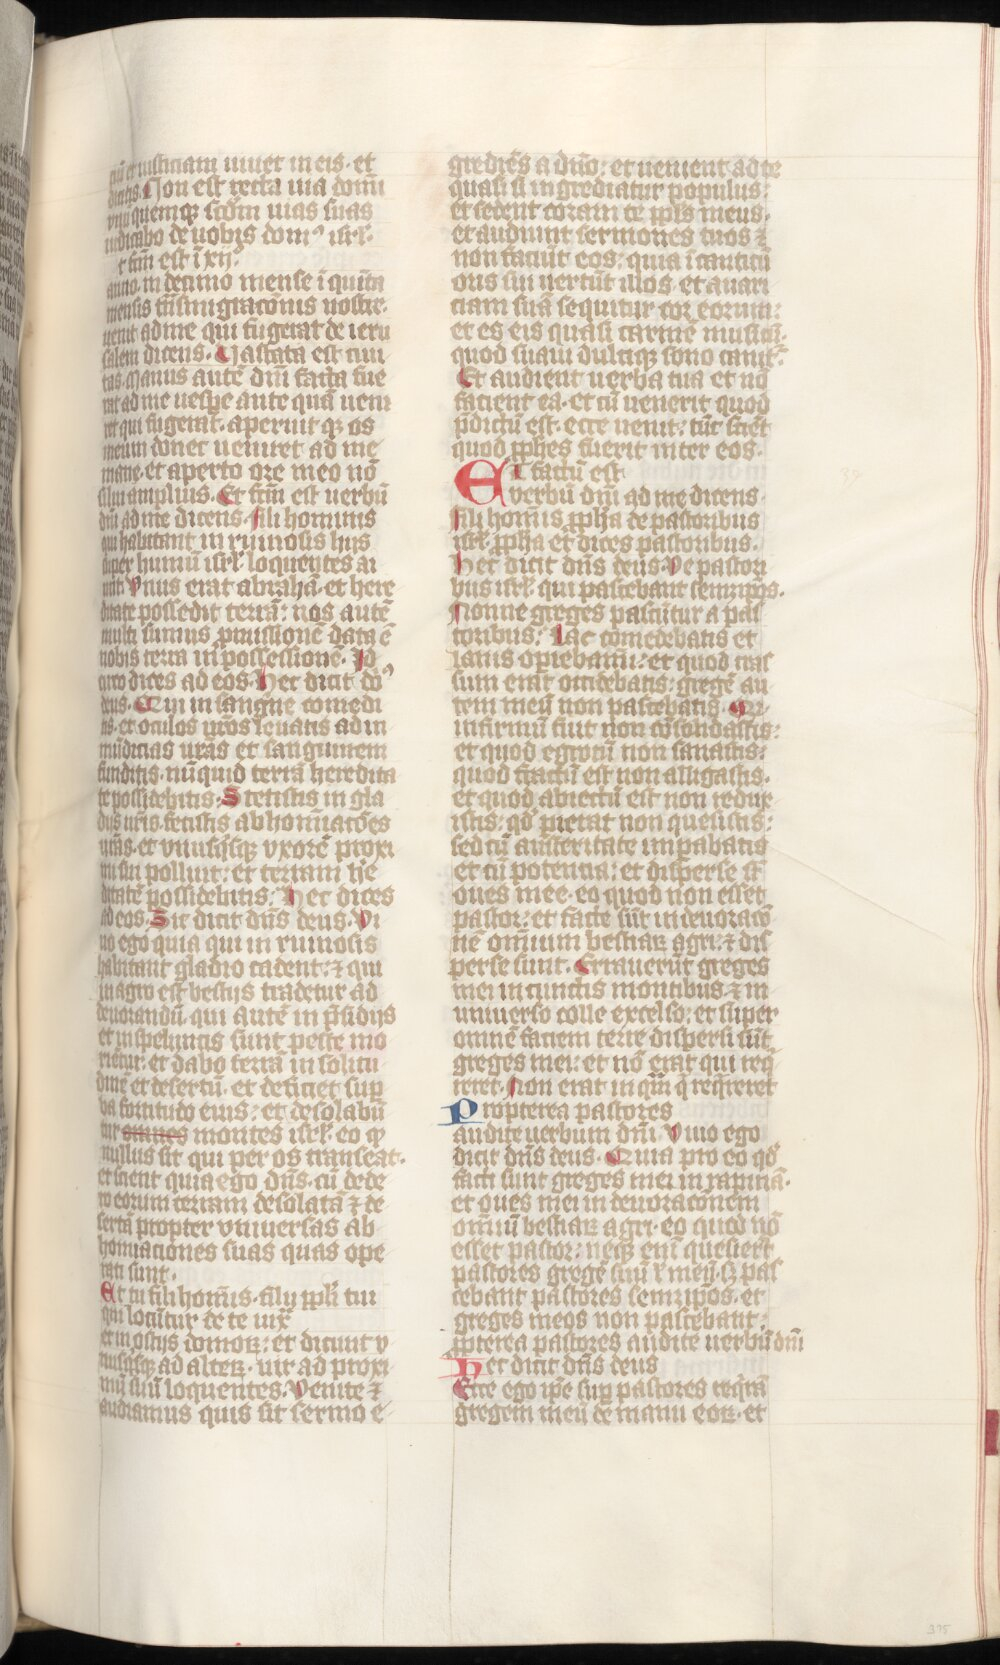 ciū et iusticiam uiuet in eis · et
dicitis · Non est recta uia domi
ni · unūquemqꝫ scdm̄ uias suas
iudicabo de uobis domꝰ isrl̄ ·
et fcm̄ est ī xijº
anno · in decimo mense ī quīta
mensis trāsmigracōnis nostre ·
uenit ad me qui fugerat de ieru
salem dicens · Uastata est ciui
tas · Manus autē dn̄i facta fue
rat ad me uespe ante quā ueni
ret qui fugerat · aperuit qꝫ os
meum donec ueniret ad me
mane · et aperto ore meo nō
silui amplius · Et fcm̄ est uerbū
dn̄i ad me dicens · fili hominis
qui habitant in ruinosis hijs
super humū isrl̄ loquentes ai
unt · Vnus erat abrahā · et here
ditate possedit terrā : nos autē
multi sumus · data ē
nobis terra in possessionē · Id
circo dices ad eos · Hec dicit dn̄s
deus · Qui in sangne comedi
tis · et oculos ur̄os leuatis ad in
mūdicias ur̄as et sanguinem
funditis · nūquid terrā heredita
te possidebitis : Stetistis in gla
dijs ur̄is · fecistis abhomīacōes
ur̄as · et vnusqsqꝫ vxorē proxi
mi sui polluit : et terram he
ditate possidebitis : Hec dices
ad eos · Sic dicit dn̄s deus · Vi
uo ego quia qui in ruinosis
habitant gladio cadent : ⁊ qui
in agro est bestijs tradetur ad
deuorandū · qui autē in p̄sidijs
et in speluncis sunt peste mo
rientur : et dabo terrā in solitu
dinē et desertū · et deficiet sup
ba fortitudo eius : et desolabū
tur omnes montes isrl̄ · eo qꝙ
nullus sit qui per os transeat ·
et scient quia ego dn̄s · cū dede
ro eorum terram desolatā ⁊ de
sertā propter vniuersas ab
homiaciones suas quas ope
rati sunt ·
Et tu fili homīs · filij ppl̄i tui
qui locūtur de te iuxͣ
et in ostijs domoꝝ : et dicunt v
nusqsqꝫ ad alteꝝ · uir ad proxi
mū suū loquentes · Venite ⁊
audiamus quis sit sermo e
grediēs a dn̄o : et uenient ad te
quasi si ingrediatur populus :
et sedent coram te ppl̄s meus ·
et audiunt sermones tuos ⁊
non faciūt eos : quia ī canticū
oris sui uertūt illos · et auari
ciam suā sequitur cor eorum :
et es eis quasi carmē musicū ·
quod suaui dulciqꝫ sono canit̄ᷣ
Et audient uerba tua et nō
facient ea · et cū uenerit quod
pdictū est · ecce uenit : tūc sciēt
quod pphes fuerit inter eos ·
Et factū est
verbū dn̄i ad me dicens ·
fili homīs ppha de pastoribus
isrl̄ · ppha et dices pastoribus ·
Hec dicit dn̄s deus · Ve pastori
bus isrl̄ · qui pascebant semetipos ·
Nonne greges pascūtur a pas
toribus : Lac comedebatis et
lanis opiebamī : et quod cras
sum erat occidebatis : gregē au
tem meū non pascebatis · Qd
infirmū fuit non cōsolidastis :
et quod egrotū non sanastis :
quod fractū est non alligastis ·
et quod abiectū est non redux
istis : qd̄ pierat non quesistis :
sed cū austeritate impabatis
et cū potentia : et disperse st̄
oues mee · eo quod non esset
pastor : et facte sūt in deuoracō
nē omnium bestiaꝝ agri : ⁊ dis
perse sunt · Errauerūt greges
mei in cunctis montibus · ⁊ in
uniuerso colle excelso : et super
omnē faciem terre dispersi sūt
greges mei : et nō erat qui req
reret · Non erat inqm̄ q̄ requireret
Propterea pastores
audite uerbum dn̄i · Viuo ego
dicit dn̄s deus · Quia pro eo qd̄
facti sunt greges mei in rapinā ·
et oues mei in deuoracōnem
omniū bestiaꝝ agri · eo quod nō
esset pastor : neqꝫ enī quesierūt
pastores gregē meū · sꝫ pas
cebant pastores semetipos · et
greges meos non pascebant :
ppterea pastores audite uerbū dn̄i
Hec dicit dn̄s deus
Ecce ego ip̄e sup pastores reqrā
gregem meū de manu eoꝝ · et
39
375